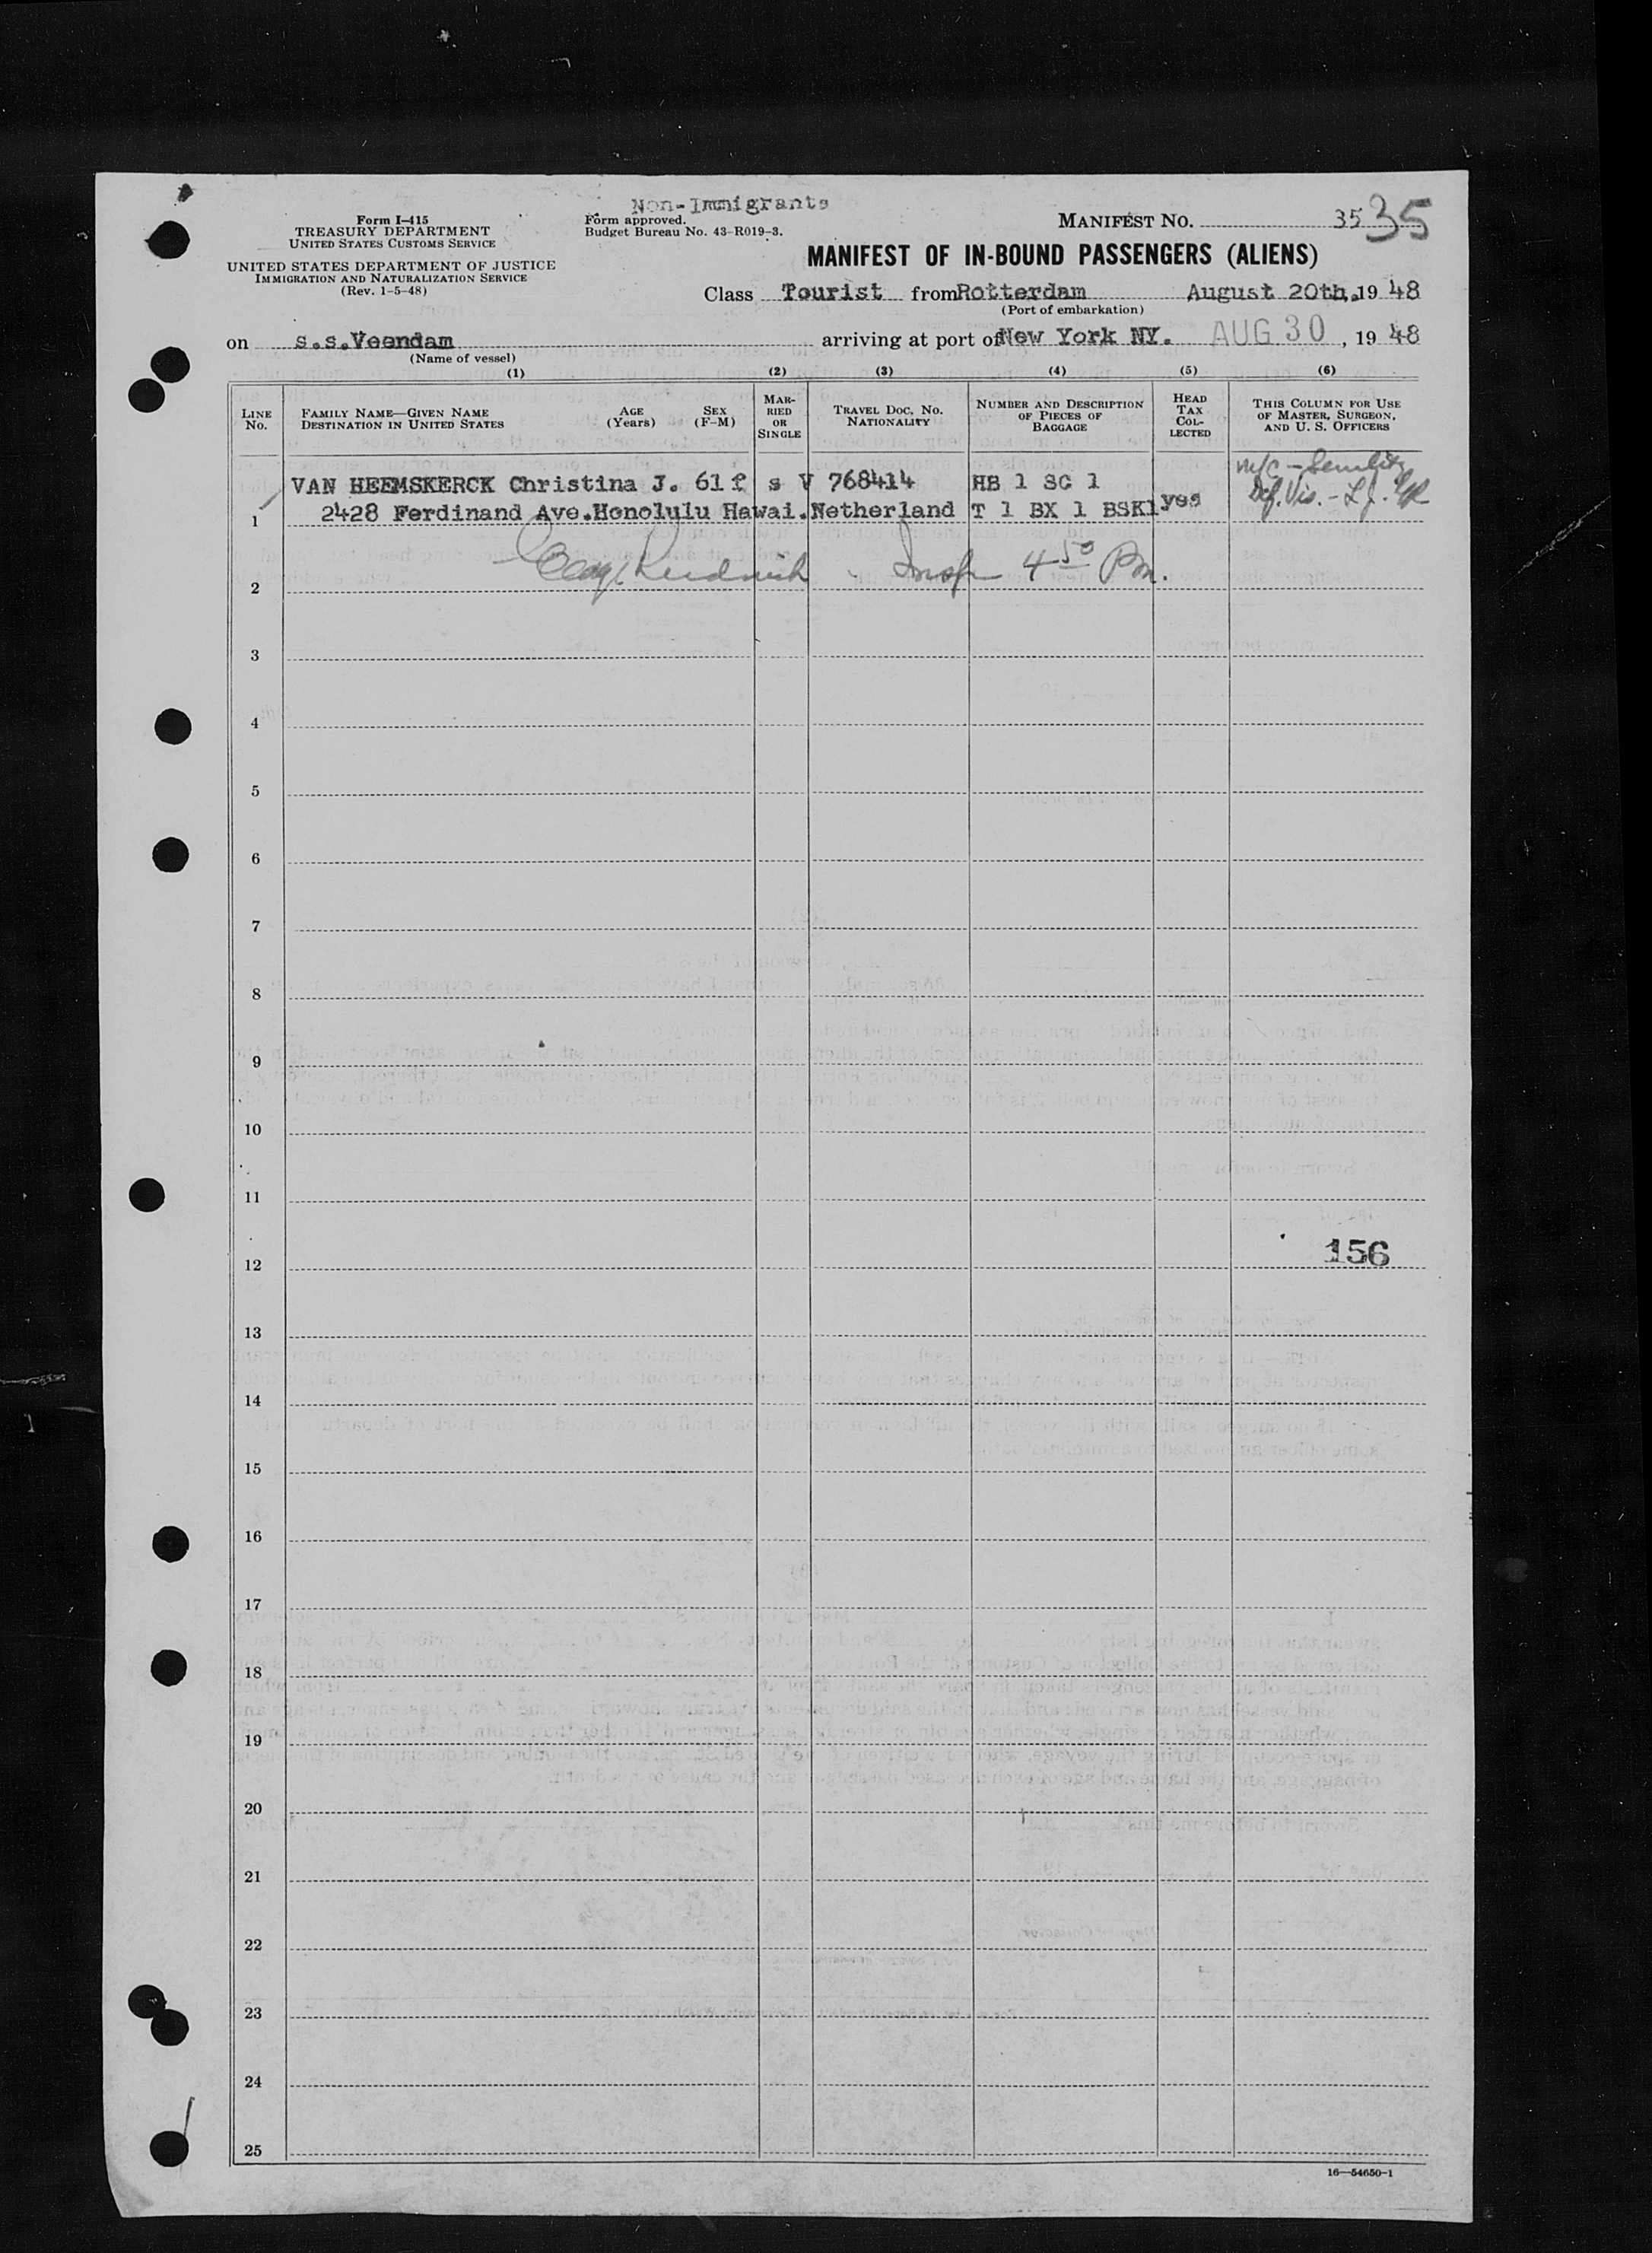 Non-Immigrants
Form I-415
TREASURY DEPARTMENT
UNITED STATES CUSTOMS SERVICE
UNITED STATES DEPARTMENT OF JUSTICE
IMMIGRATION AND NATURALIZATION SERVICE
(Rev. 1-5-48)
Form approved.
Budget Bureau No. 43-R019-3.
MANIFEST NO. 35 35
MANIFEST OF IN-BOUND PASSENGERS (ALIENS)
Class Tourist from Rotterdam August 20th, 19 48
(Port of embarkation)
on s.s.Veendam arriving at port of New York NY. AUG 30, 19 48
(Name of vessel)
(1) (2) (3) (4) (5) (6)
LINE No.
FAMILY NAME—GIVEN NAME
DESTINATION IN UNITED STATES
AGE (Years)
SEX (F-M)
MARRIED OR SINGLE
TRAVEL DOC. NO.
NATIONALITY
NUMBER AND DESCRIPTION OF PIECES OF BAGGAGE
HEAD TAX COLLECTED
THIS COLUMN FOR USE OF MASTER, SURGEON, AND U. S. OFFICERS
VAN HEEMSKERCK Christina J. 61 f s V 768414 HB 1 SC 1
1 2428 Ferdinand Ave.Honolulu Hawai. Netherland T 1 BX 1 BSK1 yes
Insp 4 50 Pm.
2
3
4
5
6
7
8
9
10
11
156
12
13
14
15
16
17
18
19
20
21
22
23
24
25
16—54650-1